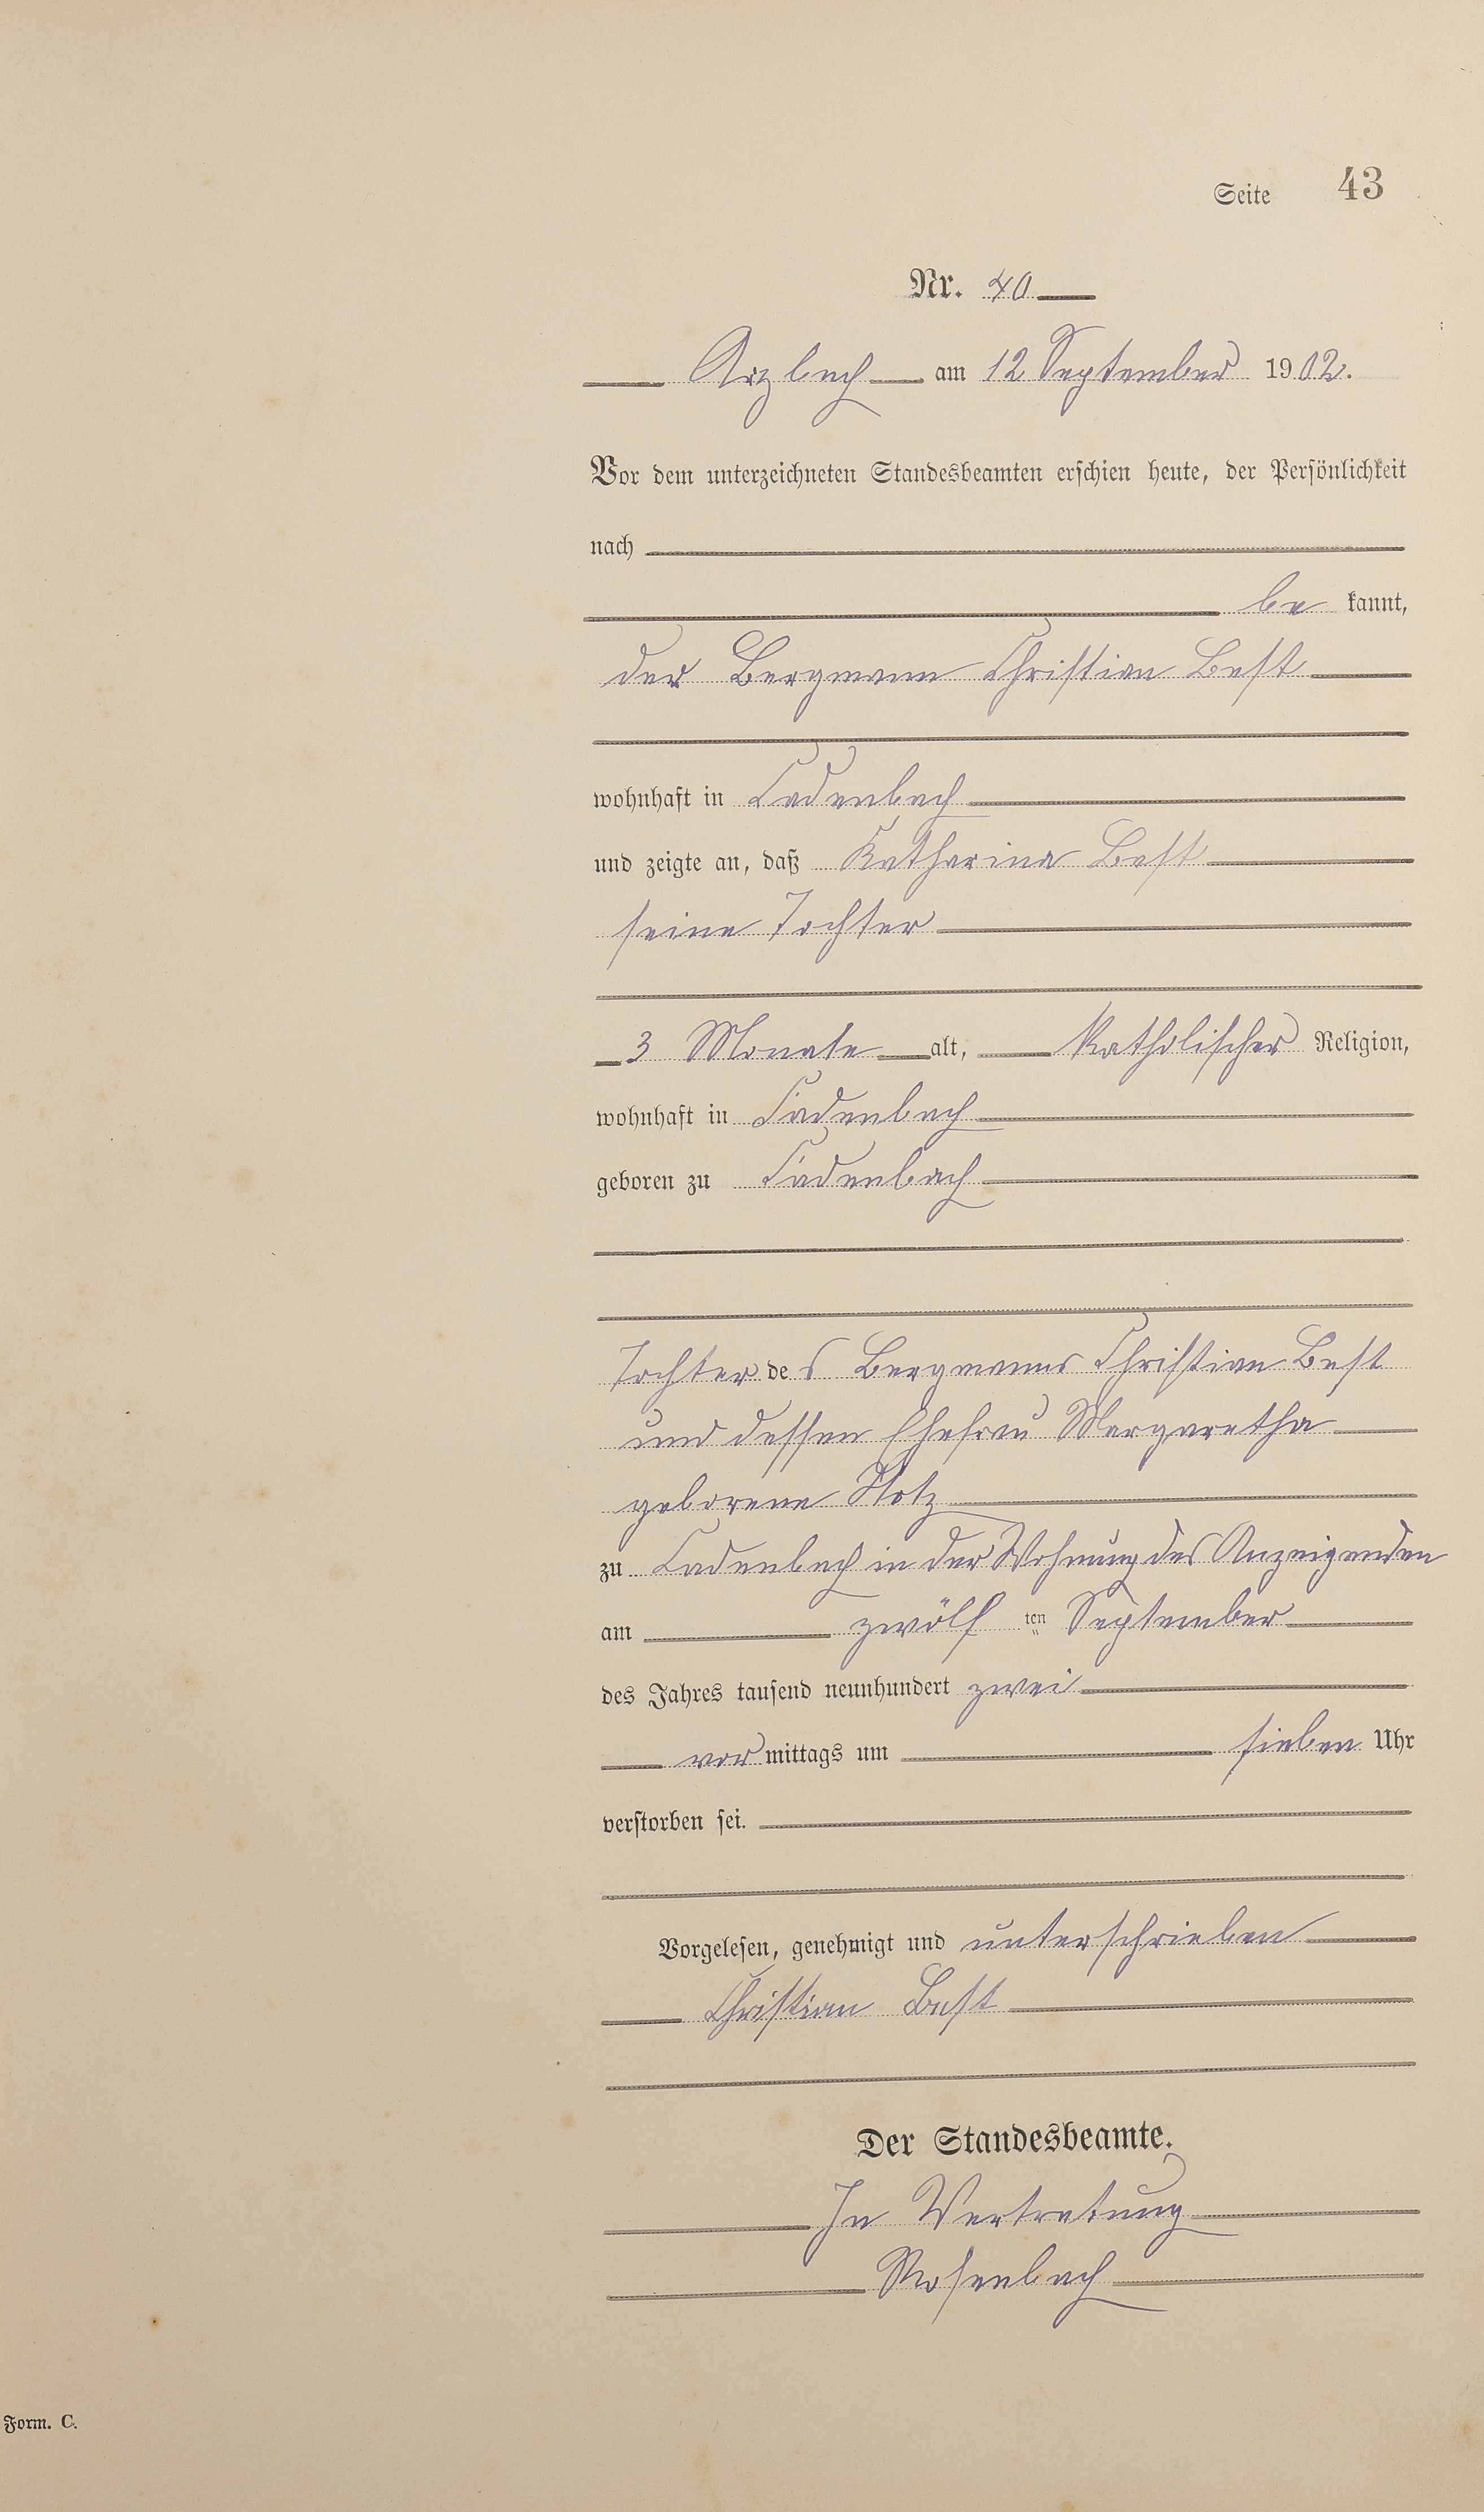 Seite 43
Nr. 40
Arzbach am 12 September 1902.
Vor dem unterzeichneten Standesbeamten erschien heute, der Persönlichkeit
nach
be kannt,
der Bergmann Christian Best
wohnhaft in Cadenbach
und zeigte an, daß Katharina Best
seine Tochter
3 Monate alt, katholischer Religion,
wohnhaft in Cadenbach
geboren zu Cadenbach
Tochter des Bergmanns Christian Best
und dessen Ehefrau Margaretha
geborene
zu Cadenbach in der Wohnung des Anzeigenden
am zwölf ten September
des Jahres tausend neunhundert zwei
vor mittags um sieben Uhr
verstorben sei.
Vorgelesen, genehmigt und unterschrieben
Christian Best
Der Standesbeamte.
In Vertretung
Rosenbach
Form. C.